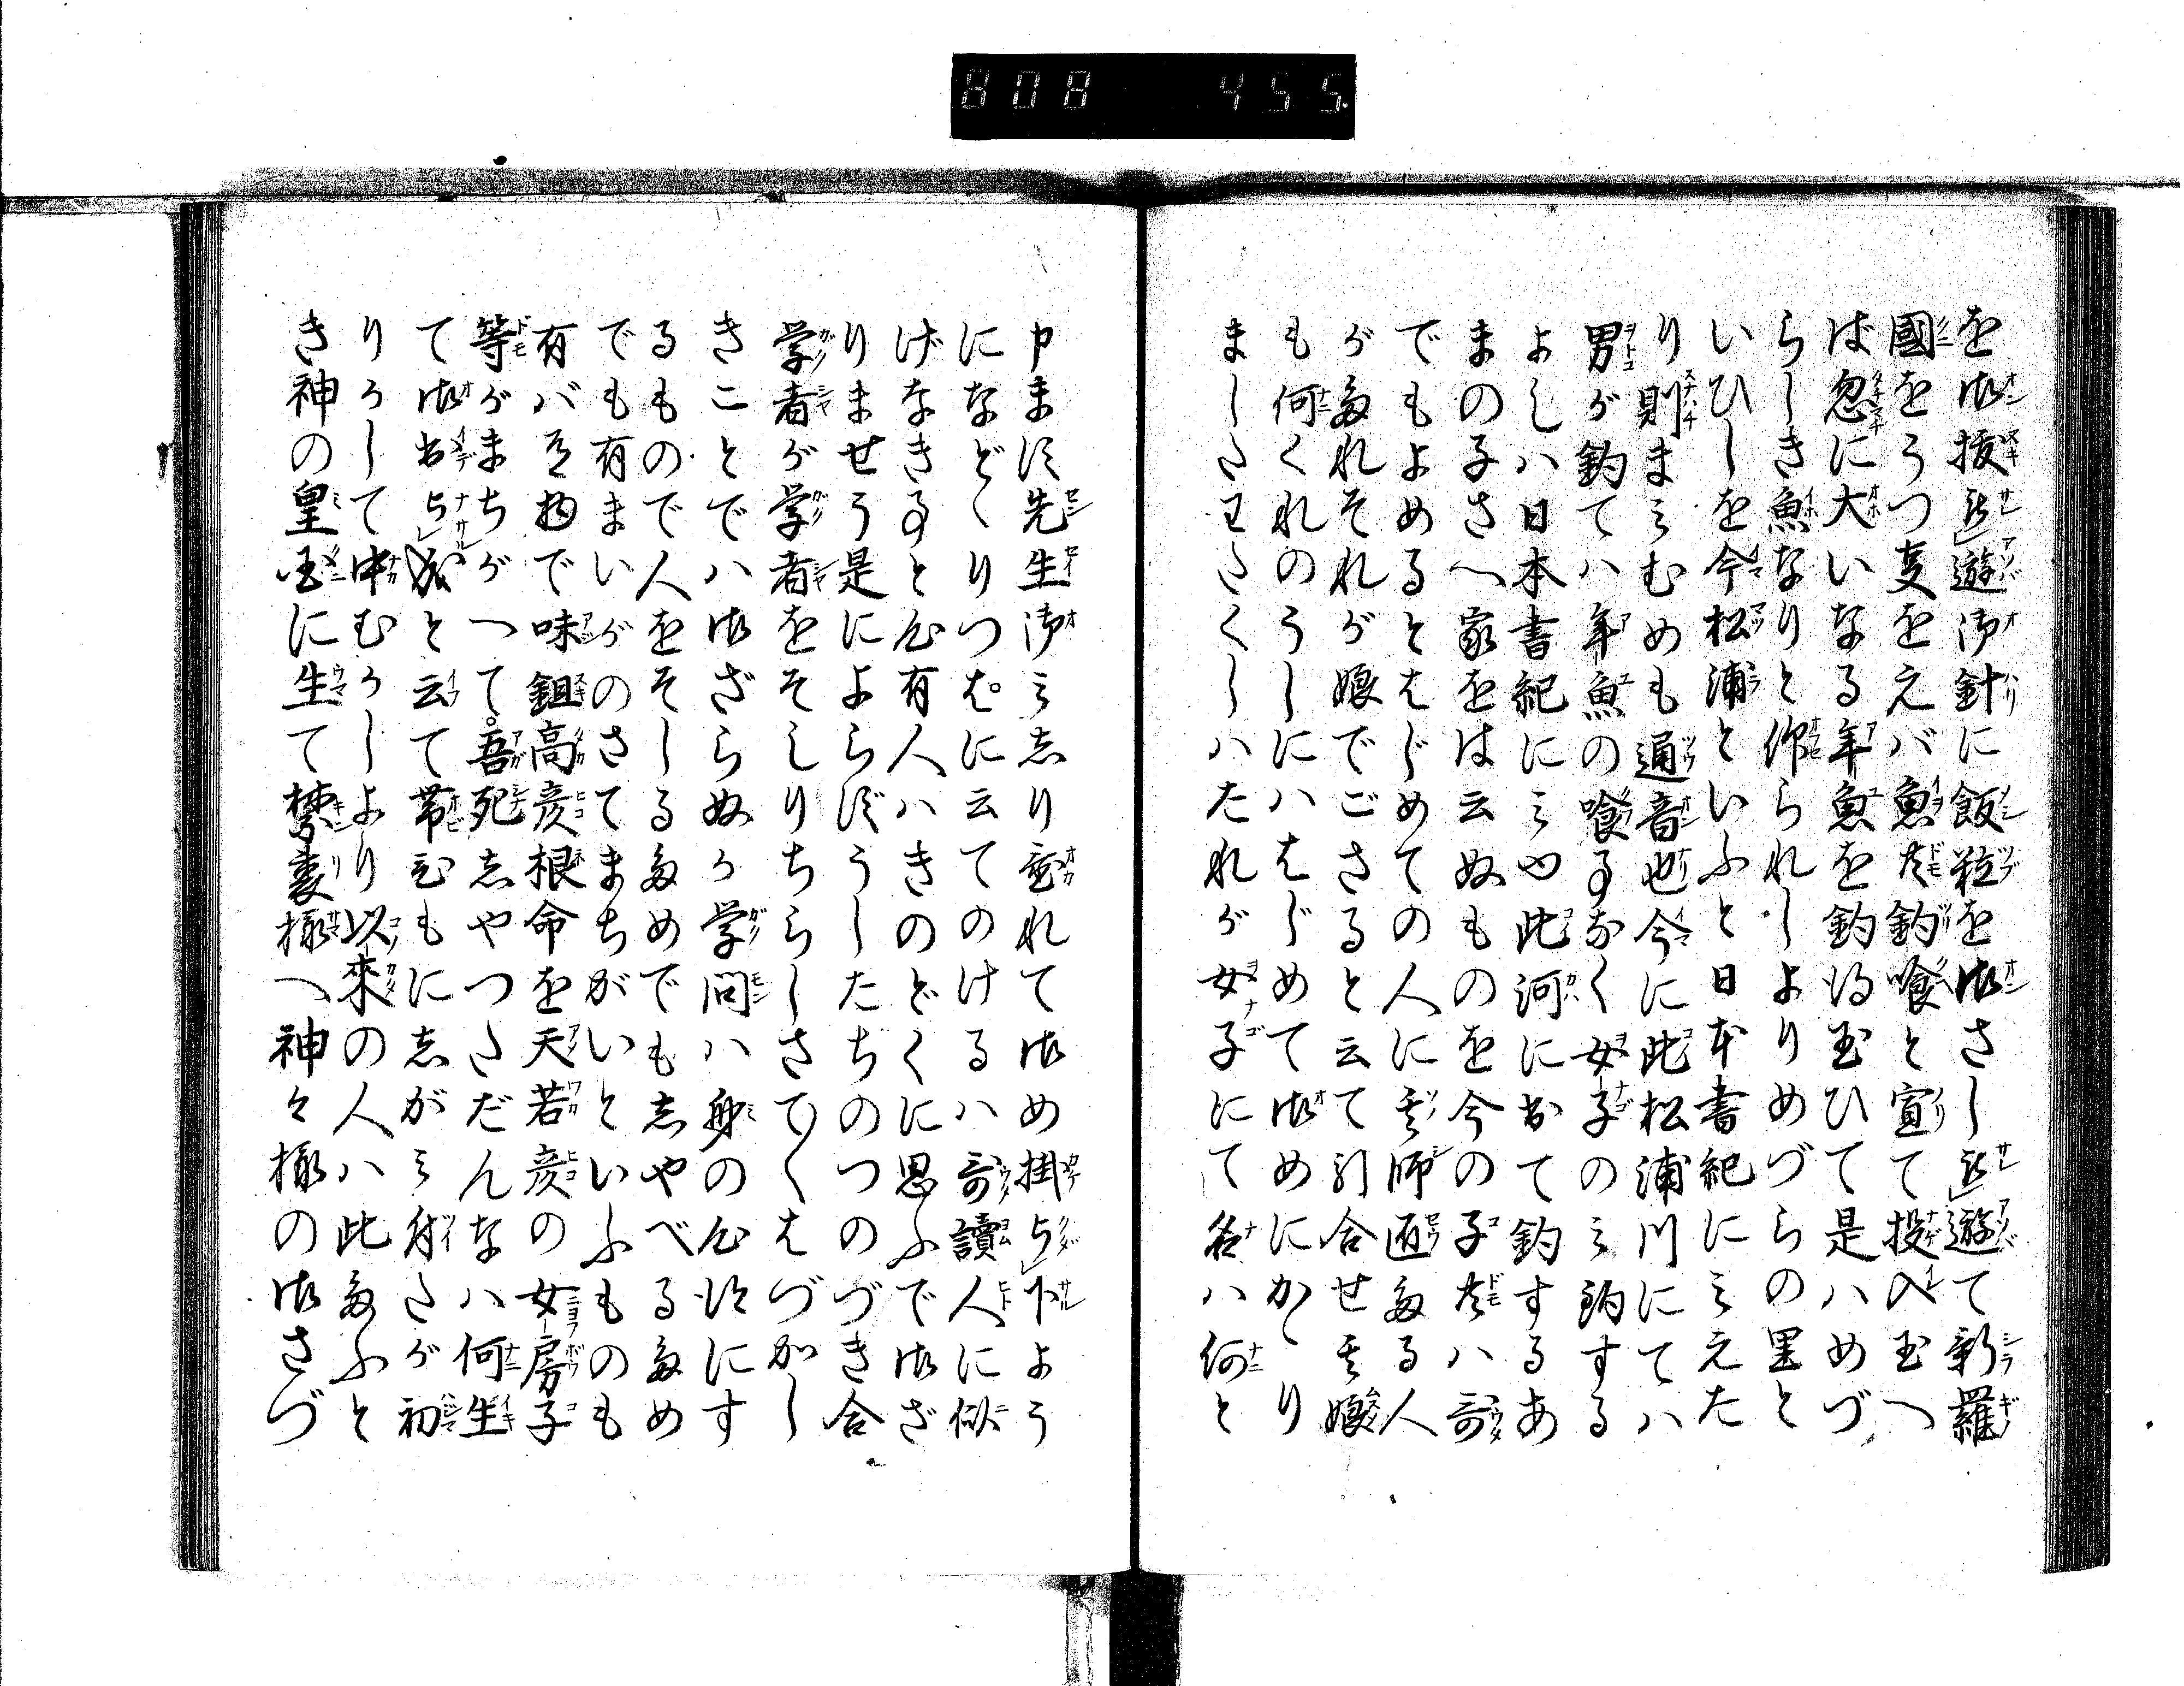 808 455
を御抜被遊御針に飯粒を御さし被遊て新羅
國をうつ支をえバ魚共釣喰と宣て投入玉へ
は忽に大いなる年魚を釣得玉ひて是ハめづ
らしき魚なりと作られしよりめづらの里と
いひしを今松浦といふと日本書紀にミえた
り則まミむめも通音也今に此松浦川にてハ
男が釣てハ年魚の喰事なく女子のミ釣する
よしハ日本書紀にミや此河に出て釣するあ
まの子さへ家をは云ぬものを今の子共ハ哥
でもよめるとはじめての人に其師匠多る人
が多れそれが娘でごさると云て引合せ其娘
も何くれのうしにハはじめて御めにかゝり
ましたわたくしハたれが女子にて名ハ何と
申ます先生御ミしり置れて御め掛られ下よう
になどくりつはに云てのけるハ哥讀人に似
げなき事と心有人ハきのどくに思ふで御ざ
りませう是によらずうしたちのつのづき合
学者が学者をそしりちらしさてくはづかし
きことでハ御ざらぬか学問ハ身の心法にす
るもので人をそしる多めでもしやべる多め
でも有まいがのさてまちがいといふものも
有バ有物で味鉏高彦根命を天若彦の女房子
等がまちがへて吾死しやつただんなハ何生
て御出被成と云て帯ひもにしがミ付たが初
りかして中むかしより以来の人ハ此多ふと
き神の皇国に生て禁裏様へ神々様の御さづ